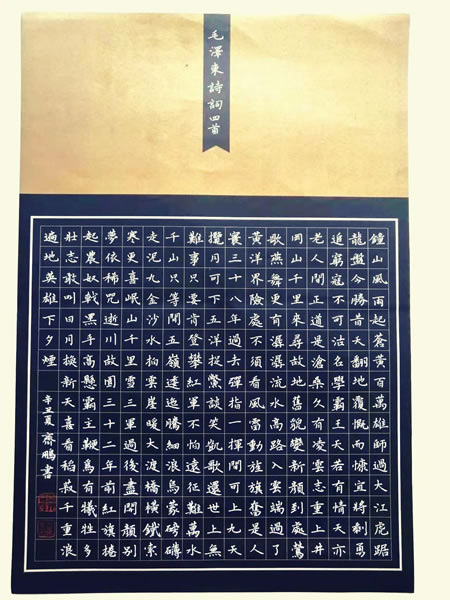 毛澤東詩詞四首
鐘山風雨起蒼黃百萬雄師過大江虎踞
龍盤今勝昔天翻地覆慨而慷宜將剩勇
追窮寇不可沽名學霸王天若有情天亦
老人間正道是滄桑久有凌雲志重上井
岡山千里來尋故地舊貌變新顏到處鶯
歌燕舞更有潺潺流水高路入雲端過了
黃洋界險處不須看風雷動旌旗奮是人
寰三十八年過去彈指一揮間可上九天
攬月可下五洋捉鱉談笑凱歌還世上無
難事只要肯登攀紅軍不怕遠征難萬水
千山只等閒五嶺逶迤騰細浪烏蒙磅礴
走泥丸金沙水拍雲崖暖大渡橋橫鐵索
寒更喜岷山千里雪三軍過後盡開顏別
夢依稀咒逝川故園三十二年前紅旗捲
起農奴戟黑手高懸霸主鞭為有犧牲多
壯志敢叫日月換新天喜看稻菽千重浪
遍地英雄下夕煙 辛丑夏 齊鵬書